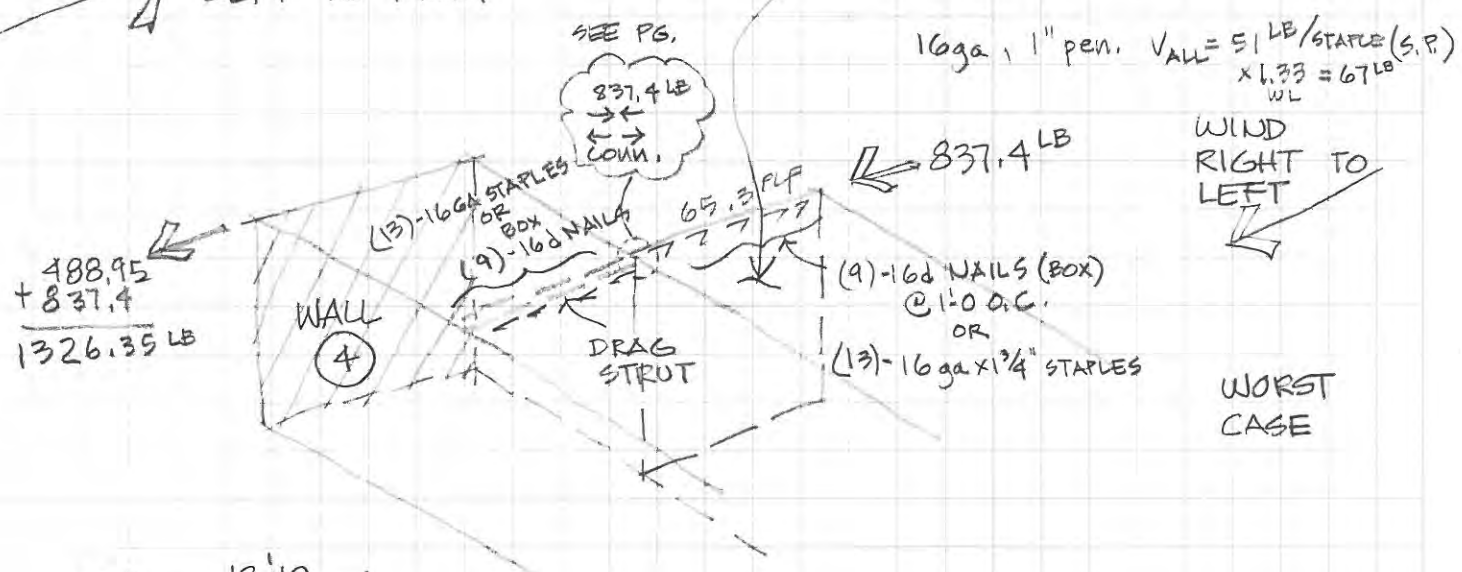 SEE PG.
837.4 LB
CONN.
16ga, 1" pen. VALL = 51 LB/STAPLE (S.P.)
x 1.33 = 67 LB
WL
WIND
RIGHT TO
LEFT
837.4 LB
65.3 PLF
(13)-16GA STAPLES
OR
BOX
(9)-16d NAILS
488.95
+ 837.4
1326.35 LB
WALL
4
DRAG
STRUT
(9)-16d NAILS (BOX)
@ 1'-0 O.C.
OR
(13)-16ga x 1 3/4" STAPLES
WORST
CASE